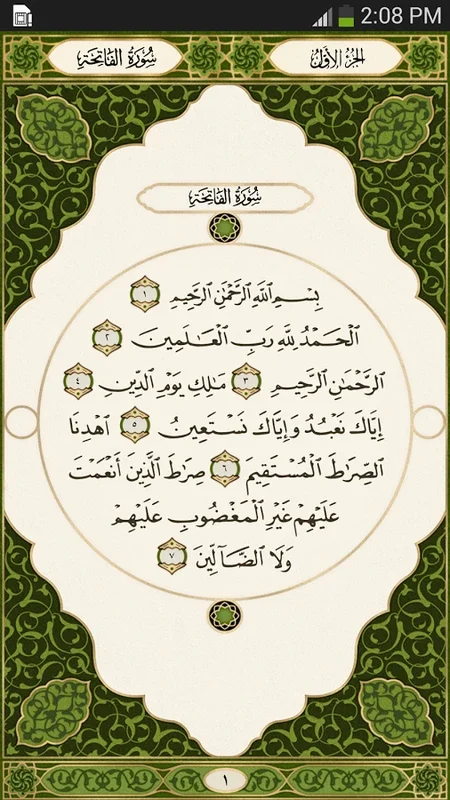 2:08 PM
سُورَةُ الفَاتِحَةِ
الجُزْءُ الأَوَّلُ
سُورَةُ الفَاتِحَةِ
بِسْمِ ٱللَّهِ ٱلرَّحْمَٰنِ ٱلرَّحِيمِ ١
ٱلْحَمْدُ لِلَّهِ رَبِّ ٱلْعَٰلَمِينَ ٢
ٱلرَّحْمَٰنِ ٱلرَّحِيمِ ٣ مَٰلِكِ يَوْمِ ٱلدِّينِ ٤
إِيَّاكَ نَعْبُدُ وَإِيَّاكَ نَسْتَعِينُ ٥ ٱهْدِنَا
ٱلصِّرَٰطَ ٱلْمُسْتَقِيمَ ٦ صِرَٰطَ ٱلَّذِينَ أَنْعَمْتَ
عَلَيْهِمْ غَيْرِ ٱلْمَغْضُوبِ عَلَيْهِمْ
وَلَا ٱلضَّآلِّينَ ٧
١